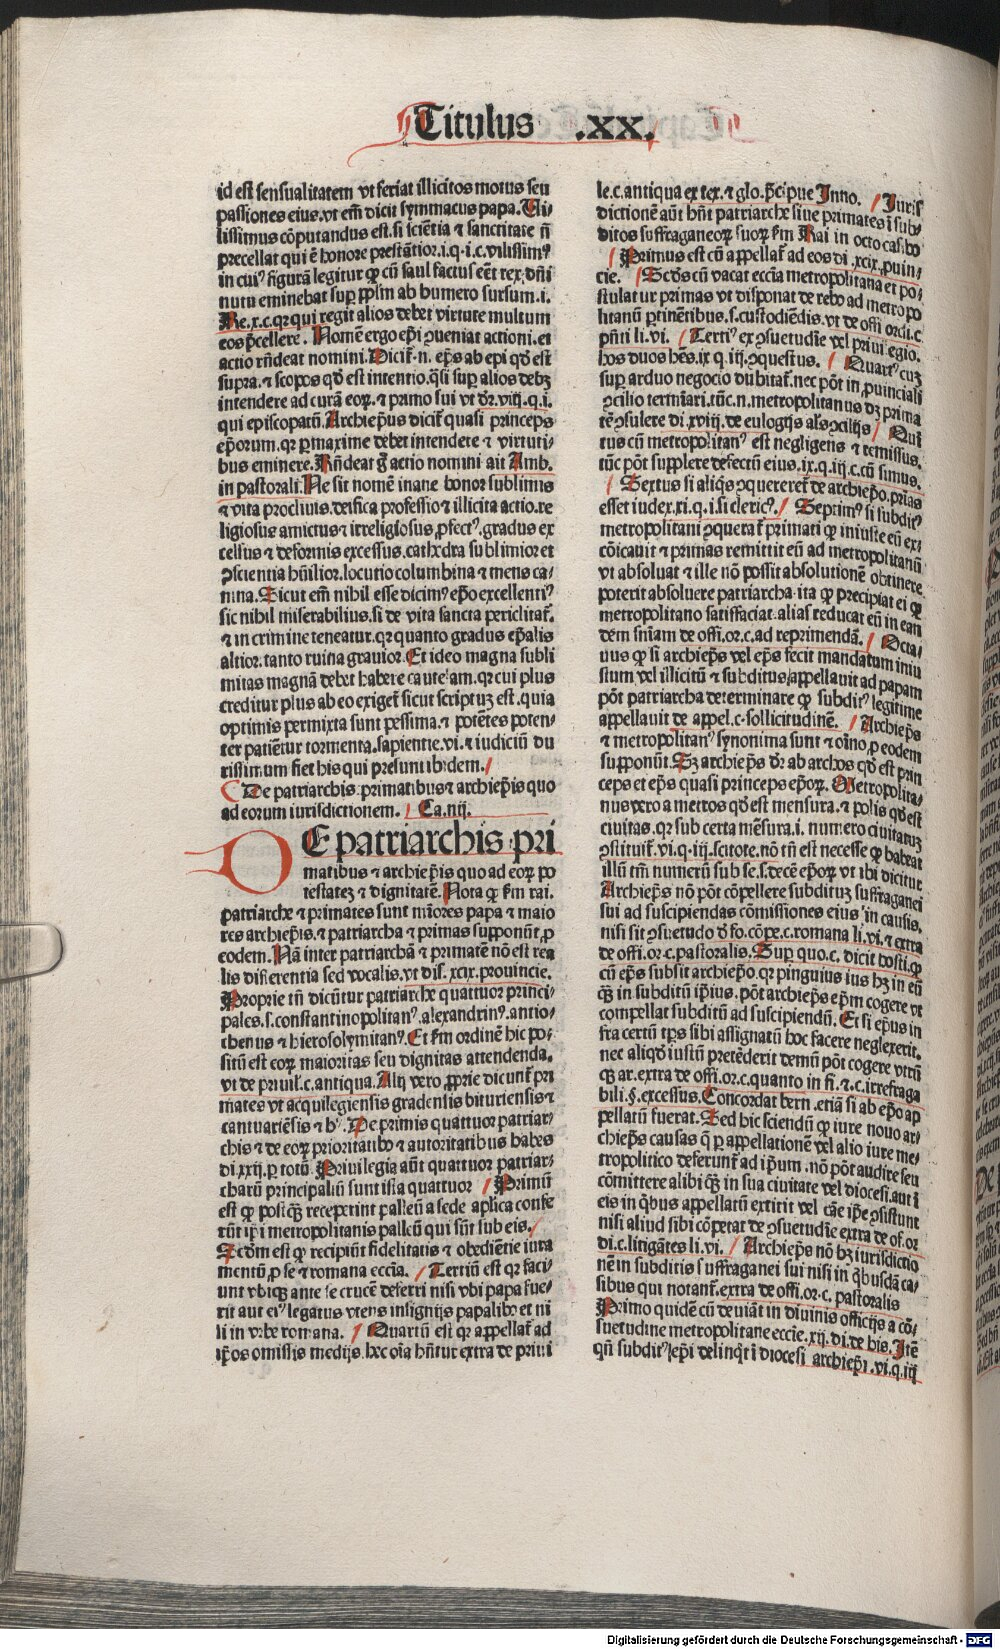 Titulus .xx.
id est sensualitatem vt feriat illicitos motus seu
passiones eius. vt em̄ dicit symmacus papa. Vi⸗
lissimus cōputandus est. si sciētia ⁊ sanctitate ñ
precellat qui ē honore prestātior. i. q. i. c. vilissimꝰ
in cuiꝰ figurā legitur ꝙ cū saul factus eēt rex, dn̄i
nutu eminebat sup ppl̄m ab humero sursum. i.
Re. x. c. qꝛ qui regit alios debet virtute multum
eos p̄cellere. Nomē ergo ep̄i ꝯueniat actioni. et
actio rn̄deat nomini. Dicit̄. n. ep̄s ab epi qd̓ est
supra. ⁊ scopos qd̓ est intentio. q̄si sup alios debꝫ
intendere ad curā eoꝝ. ⁊ primo sui vt dr̄. viij. q. i.
qui episcopatū. Archiep̄us dicit̄ quasi princeps
ep̄orum. qꝛ ꝑmaxime debet intendere ⁊ virtuti⸗
bus eminere. Rn̄deat g̊ actio nomini ait Amb.
in pastorali. Ne sit nomē inane honor sublimis
⁊ vita procliuis. deifica professio ⁊ illicita actio. re
ligiosus amictus ⁊ irreligiosus ꝓfectꝰ. gradus ex
celsus ⁊ deformis excessus. cathedra sublimior et
ꝯscientia hūilior. locutio columbina ⁊ mens ca⸗
nina. Sicut em̄ nihil esse dicimꝰ ep̄o excellentiꝰ
sic nihil miserabilius. si de vita sancta periclitat̄.
⁊ in crimine teneatur. qꝛ quanto gradus ep̄alis
altior. tanto ruina grauior. Et ideo magna subli
mitas magnā debet habere cautelam. qꝛ cui plus
creditur plus ab eo exiget̄ sicut scriptuꝫ est. quia
optimis permixta sunt pessima. ⁊ potētes poten⸗
ter patiētur tormenta. sapientie. vi. ⁊ iudiciū du
rissimum fiet his qui presunt ibidem.
De patriarchis. primatibus ⁊ archiep̄is quo
ad eorum iurisdictionem. Ca. iiij.
DE patriarchis. pri
matibus ⁊ archiep̄is quo ad eoꝝ po
testateꝫ ⁊ dignitatē. Nota ꝙ ẜm rai.
patriarche ⁊ primates sunt mīores papa ⁊ maio
res archiep̄is. ⁊ patriarcha ⁊ primas supponūt ꝓ
eodem. Nā inter patriarchā ⁊ primatē nō est rea
lis differentia sed vocalis. vt dis. xcix. prouincie.
Proprie tn̄ dicūtur patriarche quattuor princi⸗
pales. s. constantinopolitanꝰ. alexandrinꝰ. antio⸗
chenus ⁊ hierosolymitanꝰ. Et ẜm ordinē hic po⸗
sitū est eoꝝ maioritas seu dignitas attendenda.
vt de priuil. c. antiqua. Alij vero ꝓprie dicunt̄ pri
mates vt acquilegiensis gradensis bituriensis ⁊
cantuariēsis ⁊ hꝰ. De primis quattuor patriar⸗
chis ⁊ de eoꝝ prioritatibꝰ ⁊ autoritatibus habes
di. xxij. ꝑ totū. Priuilegia aūt quattuor patriar⸗
charū principaliū sunt ista quattuor Primū
est ꝙ postꝙ̄ receperint palleū a sede aplica confe
rūt ip̄i metropolitanis palleū qui sūt sub eis.
Scd̓m est ꝙ recipiūt fidelitatis ⁊ obediētie iura
mentū ꝓ se ⁊ romana eccl̄ia. Tertiū est qꝛ faci⸗
unt vbiqꝫ ante se crucē deferri nisi vbi papa fue⸗
rit aut eiꝰ legatus vtens insignijs papalibꝰ et ni
si in vrbe romana. Quartū est qꝛ appellat̄ ad
ip̄os omissis medijs. hec oīa hn̄tur extra de priui
le. c. antiqua ex tex. ⁊ glo. p̄cipue Inno. Juris
dictionē aūt hn̄t patriarche siue primates ī sub⸗
ditos suffraganeoꝝ suoꝝ ẜm Rai in octo casibꝰ
Primus est cū appellat̄ ad eos di. xcix. ꝓuin⸗
cie. Scd̓s cū vacat eccl̄ia metropolitana et po⸗
stulatur primas vt disponat de rebꝰ ad metropo
litanū ꝑtinētibus. s. custodiēdis. vt de offi ordi. c.
pn̄ti li. vi. Tertiꝰ ex ꝯsuetudīe vel priuilegio.
hos duos hēs. ix q. iij. ꝯquestus. Quartꝰ cuꝫ
sup arduo negocio dubitat̄. nec pōt in ꝓuinciali
ꝯcilio termīari. tūc. n. metropolitanus dꝫ prima
tē ꝯsulere di. xviij. de eulogijs al̓s ꝯcilijs Quī
tus cū metropolitanꝰ est negligens ⁊ remissus.
tūc pōt supplere defectū eius. ix. q. iij. c. cū simus.
Sextus si aliq̄s ꝯquereret̄ de archiep̄o. prias
esset iudex. xi. q. i. si clericꝰ. Septimꝰ si subditꝰ
metropolitani ꝯquerat̄ primati ꝙ iniuste eū ex⸗
cōicauit ⁊ primas remittit eū ad metropolitanū
vt absoluat ⁊ ille nō possit absolutionē obtinere
poterit absoluere patriarcha. ita ꝙ precipiat ei ꝙ
metropolitano satisfaciat. alias reducat eū in ean
dem sn̄iam de offi. or. c. ad reprimendā. Octa⸗
uus ꝙ si archiep̄s vel ep̄s fecit mandatum iniu
stum vel illicitū ⁊ subditus appellauit ad papam
pōt patriarcha determinare ꝙ subditꝰ legitime
appellauit de appel. c. sollicitudinē. Archiep̄s
⁊ metropolitanꝰ synonima sunt ⁊ oīno ꝓ eodem
supponūt. Sꝫ archiep̄s dr̄ ab archos qd̓ est prin
ceps et ep̄s quasi princeps ep̄oꝝ. Metropolita⸗
nus vero a metros qd̓ est mensura. ⁊ polis qd̓ est
ciuitas. qꝛ sub certa mēsura. i. numero ciuitatuꝫ
ꝯstituit̄. vi. q. iij. scitote. nō tn̄ est necesse ꝙ habeat
illū tm̄ numerū sub se. s. decē ep̄oꝝ vt ibi dicitur
Archiep̄s nō pōt cōpellere subdituꝫ suffraganei
sui ad suscipiendas cōmissiones eius in causis,
nisi sit ꝯsuetudo d̓ fo. cōpe. c. romana li. vi. ⁊ extra
de offi. or. c. pastoralis. Sup quo. c. dicit hosti. ꝙ
cū ep̄s subsit archiep̄o. qꝛ pinguius ius hꝫ in eū
ꝙ̄ in subditū ip̄ius. pōt archiep̄s ep̄m cogere vt
compellat subditū ad suscipiendū. Et si ep̄us in
fra certū tp̄s sibi assignatū hoc facere neglexerit.
nec aliqd̓ iustū pretēderit demū pōt cogere vtrū
ꝙ̄ ar. extra de offi. or. c. quanto in fi. ⁊. c. irrefraga
bili. §. excessus. Concordat bern. etiā si ab ep̄o ap
pellatū fuerat. Sed hic sciendū ꝙ iure nouo ar⸗
chiep̄s causas q̄ ꝑ appellationē vel alio iure me⸗
tropolitico deferunt̄ ad ip̄um. nō pōt audire seu
cōmittere alibi ꝙ̄ in sua ciuitate vel diocesi. aut ī
eis in q̄bus appellatū extitit vel cāe ip̄e ꝯsistunt
nisi aliud sibi cōpetat de ꝯsuetudīe extra de of. or.
di. c. litigātes li. vi. Archiep̄s nō hꝫ iurisdictio
nē in subditis suffraganei sui nisi in q̄busdā ca⸗
sibus qui notant̄. extra de offi. or. c. pastoralis
Primo quidē cū deuiāt in diuinis officijs a cō⸗
suetudine metropolitane eccl̄ie. xij. di. de his. Itē
qn̄ subditꝰ ep̄i delinq̄t ī diocesi archiep̄i. vi. q. iij
Digitalisierung gefördert durch die Deutsche Forschungsgemeinschaft - DFG